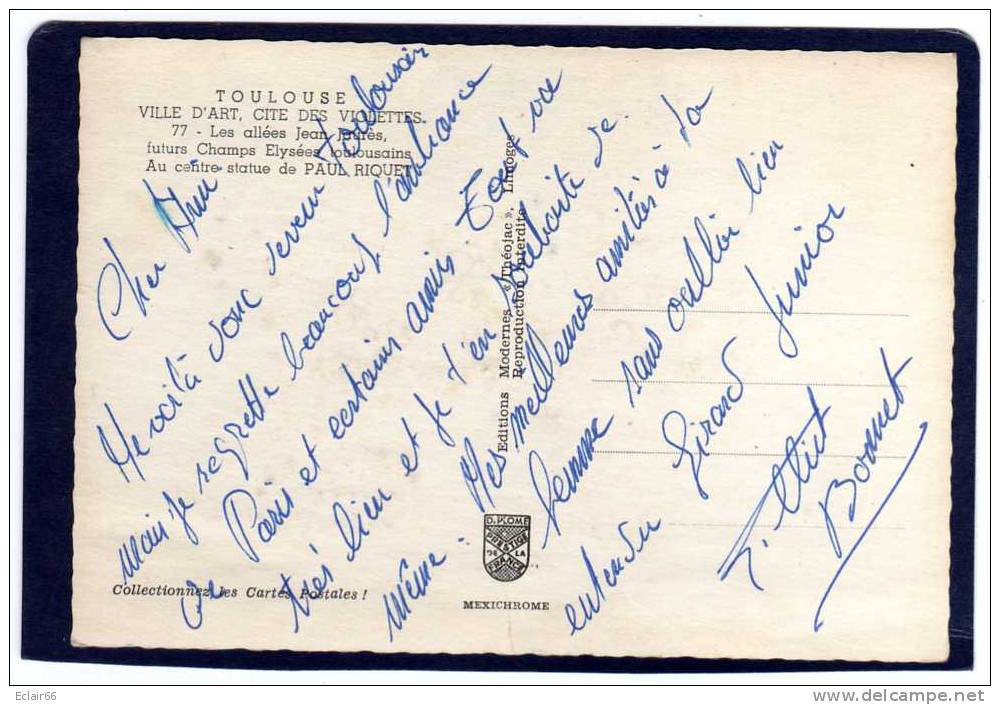 TOULOUSE
VILLE D'ART, CITE DES VIOLETTES
77 - Les allées Jean Jaurès,
futurs Champs Elysées toulousains
Au centre statue de PAUL RIQUET
Cher Ami
Me voilà donc devenu Toulousain
mais je regrette beaucoup l'ambiance
de Paris et certains amis. Tout va
très bien et je t'en souhaite de
même. Mes meilleures amitiés à ta
femme sans oublier bien
entendu Girard Junior
Bonnet
Editions Modernes « Théojac », Limoges
Reproduction Interdite
DIPLOME
PRESTIGE
DE LA
FRANCE
MEXICHROME
Collectionnez les Cartes Postales !
Eclair66
delcampe.net